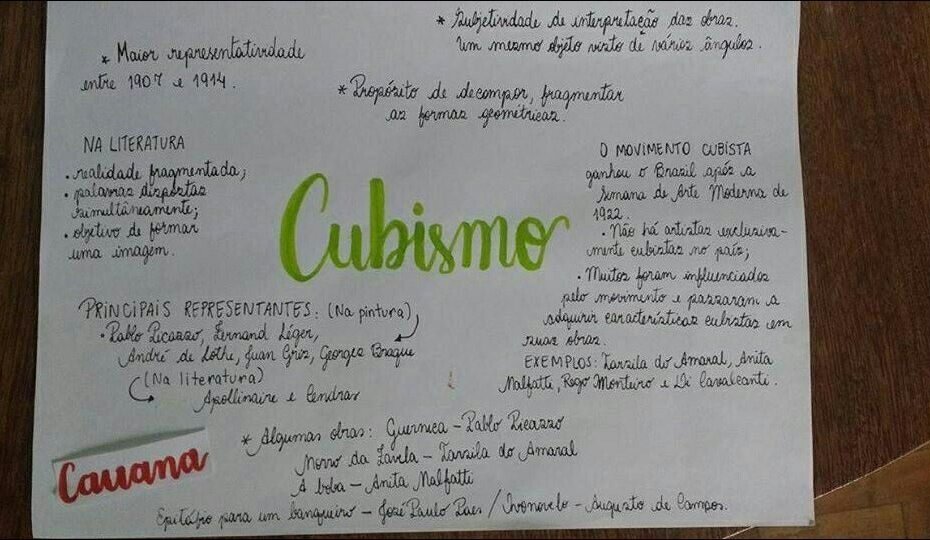 * Subjetividade de interpretação das obras.
Um mesmo objeto visto de vários ângulos.
* Maior representatividade
entre 1907 e 1914.
* Propósito de decompor, fragmentar
as formas geométricas.
NA LITERATURA
• realidade fragmentada;
• palavras dispostas
simultâneamente;
• objetivo de formar
uma imagem.
Cubismo
O MOVIMENTO CUBISTA
ganhou o Brasil após a
Semana de Arte Moderna de
1922.
• Não há artistas exclusiva-
mente cubistas no país;
• Muitos foram influenciados
pelo movimento e passaram a
adquirir características cubistas em
suas obras.
EXEMPLOS: Tarsila do Amaral, Anita
Malfatti, Rego Monteiro e Di Cavalcanti.
PRINCIPAIS REPRESENTANTES: (Na pintura)
• Pablo Picasso, Fernand Léger,
André de Lothe, Juan Gris, Georges Braque
(Na literatura)
Apollinaire e Cendras
* Algumas obras: Guernica – Pablo Picasso
Morro da Favela – Tarsila do Amaral
A boba – Anita Malfatti
Epitáfio para um banqueiro – José Paulo Paes / Ivonovelo – Augusto de Campos.
Cauana